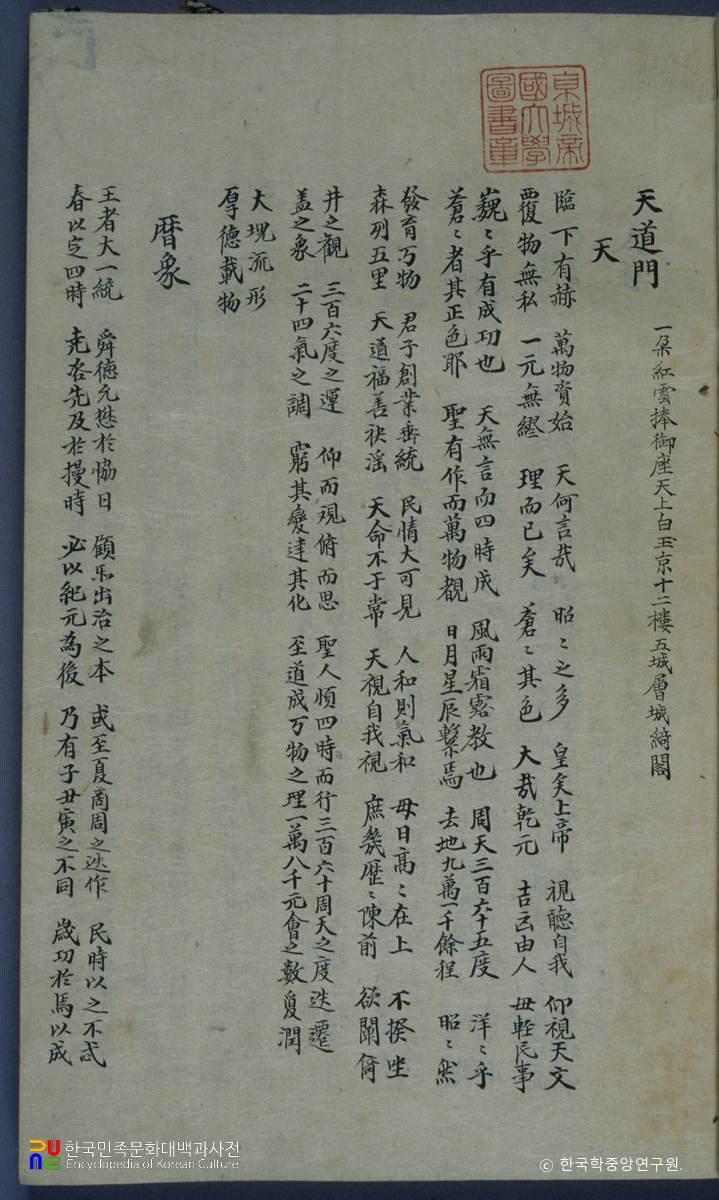 京城帝
國大學
圖書章
天道門
一朶紅雲捧御座天上白玉京十二樓五城層城綺閣
天
臨下有赫 萬物資始 天何言哉 昭〻之多 皇矣上帝 視聽自我 仰視天文
覆物無私 一元無繆 理而已矣 蒼〻其色 大哉乾元 吉凶由人 毋輕民事
巍〻乎有成功也 天無言而四時成 風雨霜露教也 周天三百六十五度 洋〻乎
蒼〻者其正色耶 聖有作而萬物覩 日月星辰繫焉 去地九萬一千餘程 昭〻然
發育万物 君子創業垂統 民情大可見 人和則氣和 毋曰高〻在上 不揆坐
森列五里 天道福善殃淫 天命不于常 天視自我視 庶幾歷〻陳前 欲闚倚
井之觀 三百六度之運 仰而観俯而思 聖人順四時而行三百六十周天之度迭遷
盖之象 二十四氣之調 窮其變達其化 至道成万物之理一萬八千元會之數夐
大現流形
厚德載物
曆象
王者大一統 舜德允懋於恊日 顧出治之本 或至夏商周之迭作 民時以之不忒
春以定四時 尭咨先及於授時 必以紀元為後 乃有子丑寅之不同 歲功於焉以成
한국민족문화대백과사전
Encyclopedia of Korean Culture
© 한국학중앙연구원.